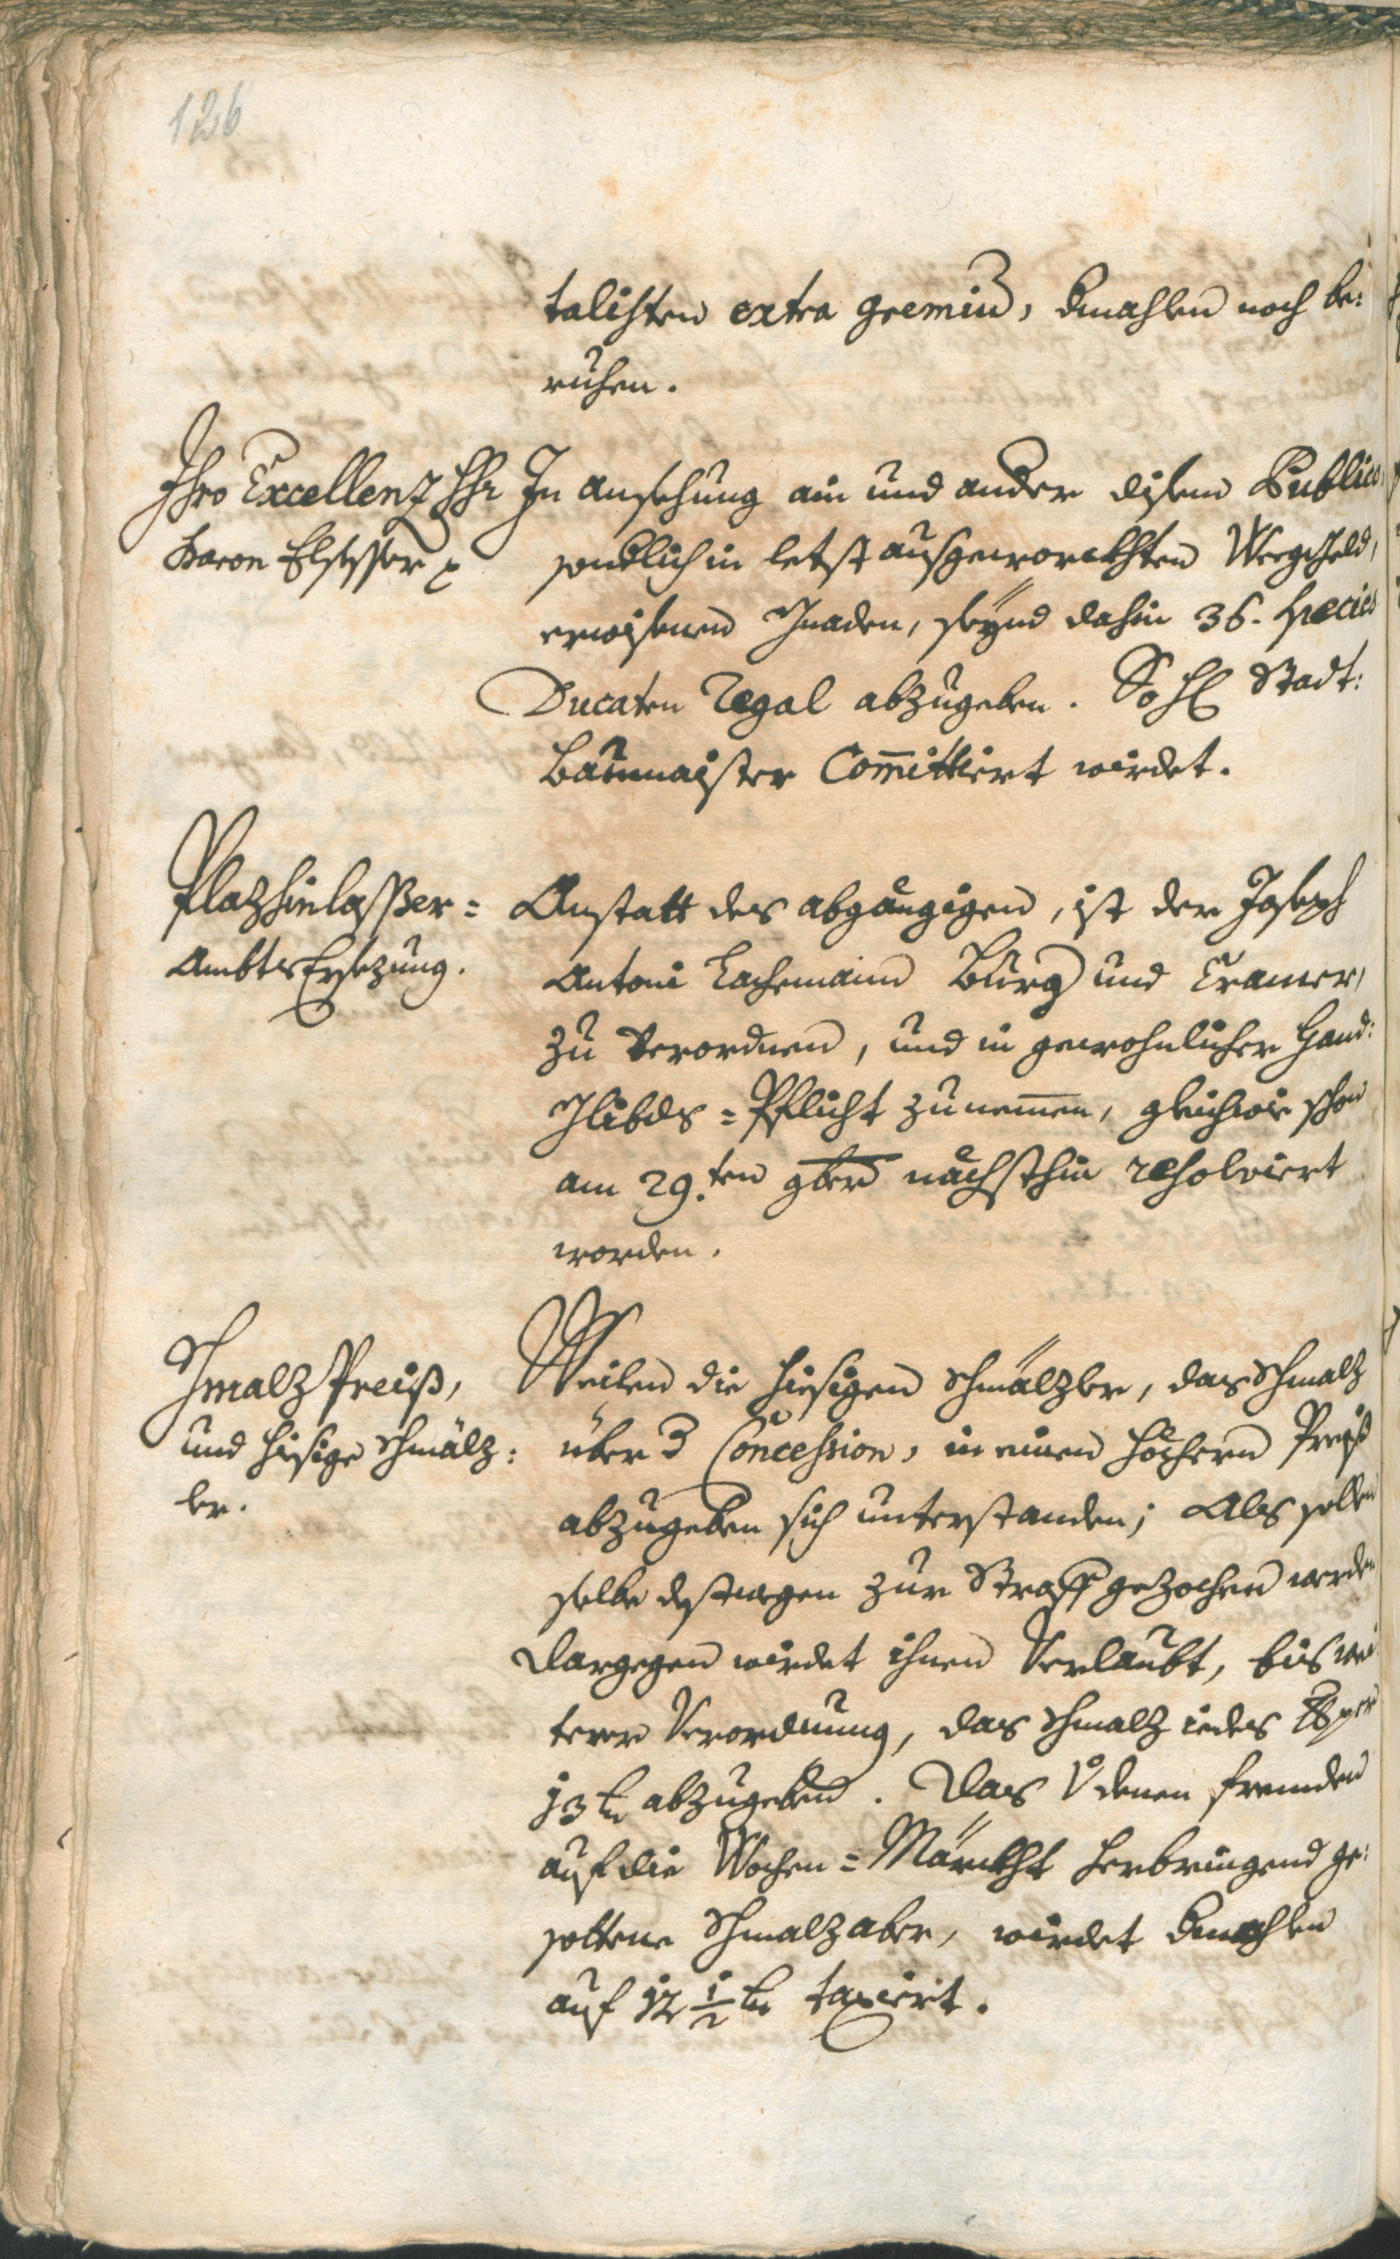 126
talisten extra gremiu, dmahlen noch be:
ruhen.
Ihro Excellenz Hh
Baron Elsesser
In ansehung ain und ander disem Publico,
sondlich in letst ausgeworckhten Weeg geld,
erwisenen Gnaden, seynd dahin 36. species
Ducaten Regal abzugeben. So H Stadt:
baumaister Committiert wirdet.
Plazhinlasser=
Ambts Ersezung.
Anstatt des abgängigen, ist der Joseph
Antoni Lachemair Burg und Cramer,
zu Verordnen, und in gewohnlicher Hand:
Glibds=Pflicht zunemmen, gleichwie schon
am 29.ten 9ber nächsthin resolviert
worden.
Schmalz Preiß,
und hiesige Schmälz:
ler.
Weilen die hiesigen Schmälzler, das Schmalz
über 3 Concession, in einen höchern Preiß
abzugeben sich unterstanden; Als sollen
selbe destwegen zur Straff gezochen werden
Dargegen wirdet ihnen Verlaubt, bis wei
terer Verordnung, das Schmalz iedes ℔ per
13 kr abzugeben. Das v denen fremden
auf die Wochen=Märckht herbringend ge:
sottene Schmalz aber, wirdet dmahlen
auf 12 1/2 kr taxiert.